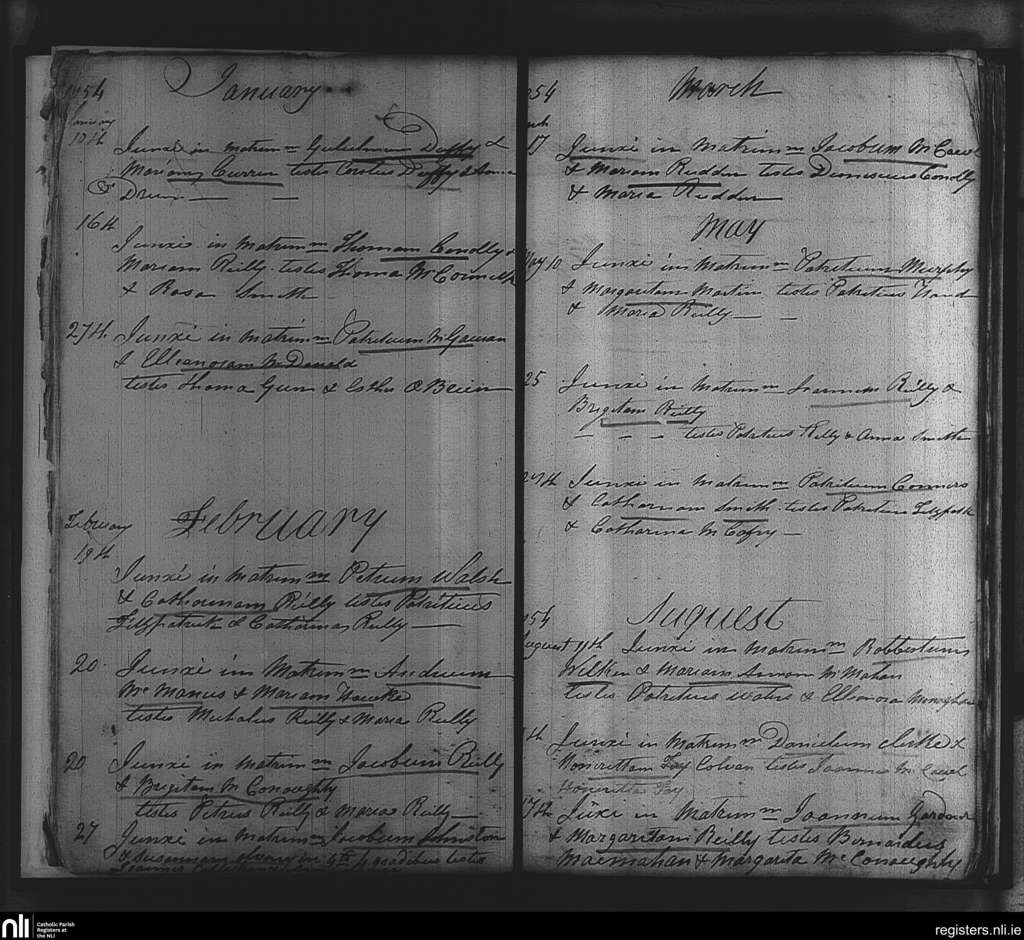 1854 January
January
10th
Junxi in matrim m Gulielmum Duffy &
Mariam Curren testes Duffy & Anna
Drum
16th
Junxi in matrim m Thomam Conolly &
Mariam Reilly testes Thoma McCormick
& Rosa Smith
27th Junxi in matrim m Patritium McGauran
& Elleanoram McDonald
testes Thoma Gunn & Esther O Beirn
February
February
19th
Junxi in matrim m Petrum Walsh
& Catharinam Reilly testes Patritius
Fitzpatrick & Catharina Reilly
20 Junxi in Matrim m Andreum
McManus & Mariam Hawke
testes Michalus Reilly & Maria Reilly
20 Junxi in matrim m Jacobum Reilly
& Brigitam McConaughty
testes Petrus Reilly & Maria Reilly
27 Junxi in matrim m Jacobum Johnston
& Susannam in 4th 4 gradibus testes
854 March
17 Junxi in Matrim m Jacobum
& Mariam Rudden testes Conolly
& Maria Rudden
May
May 10 Junxi in Matrim m Patritium Murphy
& Margaritam Martin testes Patritius
& Maria Reilly
25 Junxi in Matrim m Joannem Reilly &
Brigitam Reilly
testes Patritius Reilly & Anna Smith
27th Junxi in Matrim m Patritium Connors
& Catharinam Smith testes Patritius Fitzpatk
& Catharina McCafry
854 Auguest
August 9th Junxi in Matrim m Robbertum
Wilken & Mariam Annam McMahon
testes Patritius Waters & Ellenora Monaghan
th Junxi in Matrim m Danielum Clerke &
Honorittam Foy Colvan testes Joannes
Honoritta Foy
17th Juxi in Matrim m Joannem Gardner
& Margaritam Reilly testes Bernardus
Macmahan & Margarita McConaughty
nli
Catholic Parish
Registers at
the NLI
registers.nli.ie